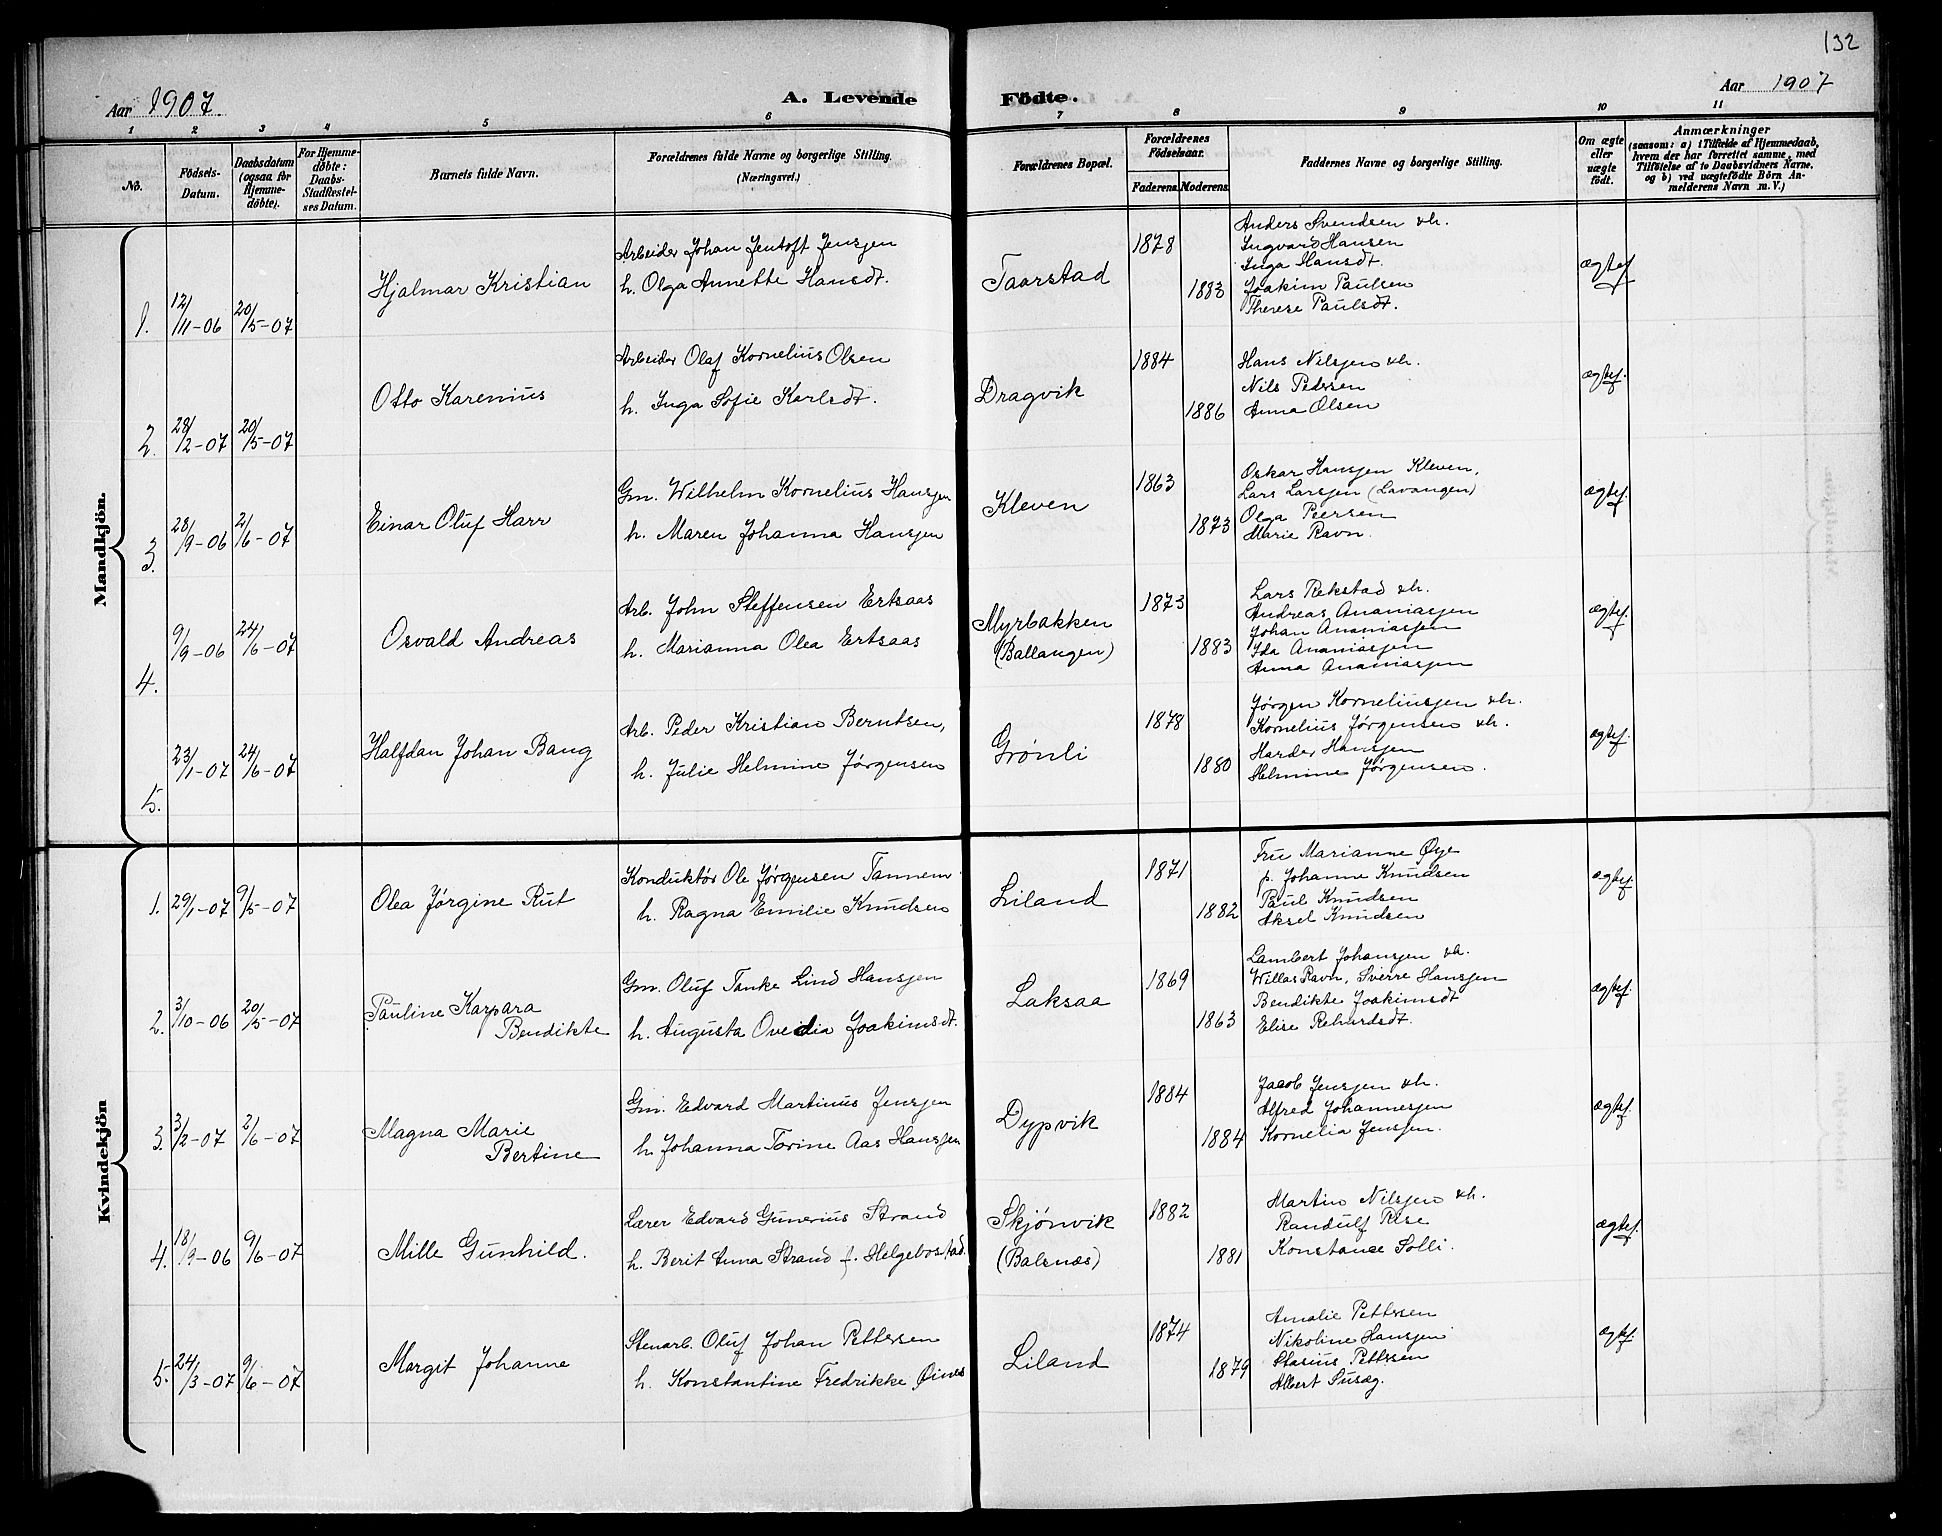 132
Aar 1907.
A. Levende
Födte.
Aar 1907
1 2 3 4 5 6 7 8 9 10 11
No.
Födsels-
Datum.
Daabsdatum
(ogsaa for
Hjemme-
döbte).
For Hjemme-
döbte:
Daabs-
Stadfæstel-
ses Datum.
Barnets fulde Navn.
Forældrenes fulde Navne og borgerlige Stilling.
(Næringsvei.)
Forældrenes Bopæl.
Forældrenes
Födselsaar.
Faderens. Moderens.
Faddernes Navne og borgerlige Stilling.
Om ægte
eller
uægte
födt.
Anmærkninger
(saasom: a) i Tilfælde af Hjemmedaab,
hvem der har forrettet samme, med
Tilföielse af to Daabsvidners Navne,
og b) ved uægtefödte Börn An-
melderens Navn m. V.)
Mandkjön.
1. 12/11-06 20/5-07 Hjalmar Kristian
Arbeider Johan Jentoft Jensjen
h. Olga Annette Hansdt.
Taarstad
1878
1883
Anders Svendsen &h.
Ingvard Hansen
Inga Hansdt.
Joakim Paulsen
Therese Paulsdt.
ægtef.
2. 28/2-07 20/5-07 Otto Karenius
Arbeider Olaf Kornelius Olsen
h. Inga Sofie Karlsdt.
Dragvik
1884
1886
Hans Nilsjen &h.
Nils Pedersen
Anna Olsen
ægtef.
3. 28/9-06 2/6-07 Einar Oluf Harr
Gm. Wilhelm Kornelius Hansjen
h. Maren Johanna Hansjen
Kleven
1863
1873
Oskar Hansjen Kleven,
Lars Larsjen (Lavangen)
Olga Peersen
Marie Ravn.
ægtef.
4. 9/9-06 24/6-07 Osvald Andreas
Arb. John Steffensen Ertsaas
h. Marianna Olea Ertsaas
Myrbakken
(Ballangen)
1873
1883
Lars Rekstad &h.
Andreas Ananiasjen
Johan Ananiasjen
Ida Ananiasjen
Anna Ananiasjen
ægtef.
5. 23/1-07 24/6-07 Halfdan Johan Bang
Arb. Peder Kristian Berntsen,
h. Julie Helmine Jørgensen
Grønli
1878
1880
Jørgen Korneliusjen &h.
Kornelius Jørgensen &h.
Harder Hansjen
Helmine Jørgensen.
ægtef.
Kvindekjön
1. 29/1-07 9/5-07 Olea Jørgine Rut
Konduktör Ole Jørgensen Tannem
h. Ragna Emilie Knudsen
Liland
1871
1882
Fru Marianne Øye
p. Johanne Knudsen
Paul Knudsen
Aksel Knudsen
ægtef.
2. 3/10-06 20/5-07 Pauline Kaspara
Bendikte
Gm. Oluf Tanke Lind Hansjen
h. Augusta Ovedia Joakimsdt.
Laksaa
1869
1863
Lambert Johansjen &h.
Willas Ravn, Sverre Hansjen
Bendikte Joakimsdt
Elise Rehardsdt.
ægtef.
3. 3/2-07 2/6-07 Magna Marie
Bertine
Gm. Edvard Martinus Jensjen
h. Johanna Torine Aas Hansjen
Dypvik
1884
1884
Jacob Jensjen &h.
Alfred Johannesjen
Kornelia Jensjen.
ægtef.
4. 18/9-06 9/6-07 Mille Gunhild.
Lærer Edvard Gunerius Strand
h. Berit Anna Strand f. Helgebostad.
Skjønvik
(Balsnæs)
1882
1881
Martin Nilsjen &h.
Randulf Rise
Konstance Solli.
ægtef.
5. 24/3-07 9/6-07 Margit Johanne
Stenarb. Oluf Johan Pettersen
h. Konstantine Fredrikke Øines
Liland
1874
1879
Amalie Pettersen
Nikoline Hansjen
Stasius Pettersen
Albert Susæg.
ægtef.